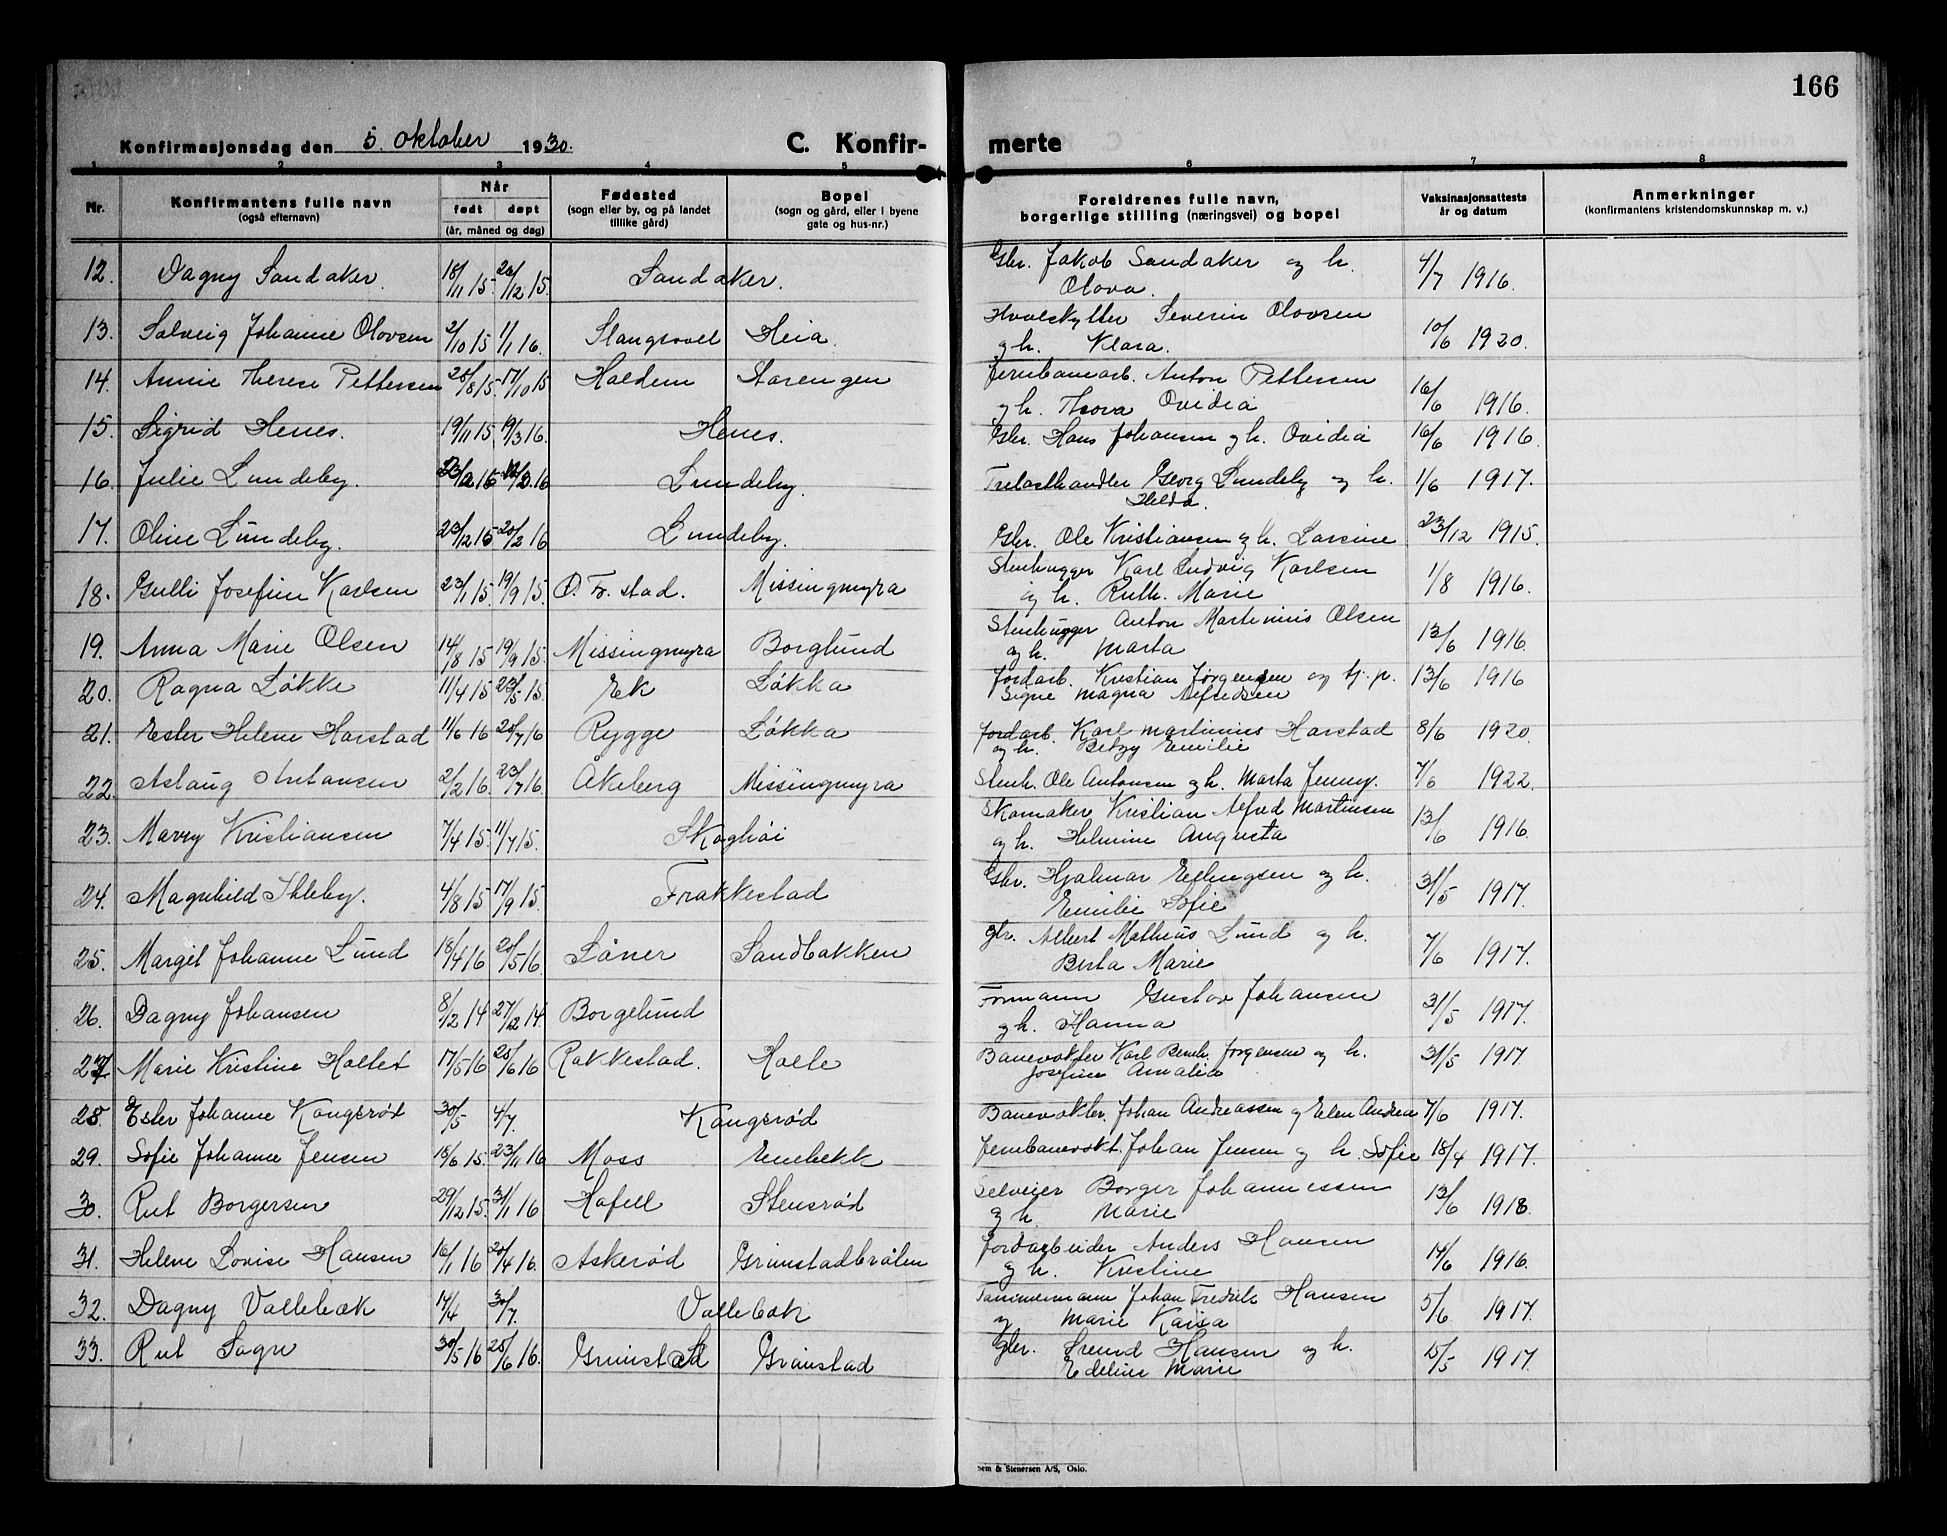 166
Konfirmasjonsdag den 5. oktober 1930.
C. Konfir- merte
1 2 3 4 5 6 7 8
Nr. Konfirmantens fulle navn (også efternavn) Når født døpt (år, måned og dag) Fødested (sogn eller by, og på landet tillike gård) Bopel (sogn og gård, eller i byene gate og hus-nr.) Foreldrenes fulle navn, borgerlige stilling (næringsvei) og bopel Vaksinasjonsattests år og datum Anmerkninger (konfirmantens kristendomskunnskap m. v.)
12. Dagny Sandaker. 18/11 15. 26/12 15. Sandaker. Gbr. Jakob Sandaker og h. 4/7 1916.
Olava.
13. Solveig Johanne Olovsen 2/10 15 1/1 16. Slangsvol Heia. Hvalskytter Severin Olovsen 10/6 1920.
og h. Klara.
14. Annie Therese Pettersen 28/8 15. 17/10 15 Halden Starengen Jernbanearb. Anton Pettersen 16/6 1916.
og h. Thora Ovidia
15. Sigrid Henes. 19/11 15. 19/3 16. Henes. Gbr. Hans Johansen og h. Ovidia 16/6 1916.
16. Julie Lundeby. Lundeby. Trelasthandler Georg Lundeby og h. 1/6 1917.
Hilda.
17. Oline Lundeby. 23/12 15 20/2 16 Lundeby. Gbr. Ole Kristiansen og h. Larsine 23/12 1915.
18. Gulli Josefine Karlsen 23/1 15. 19/9 15. Ø. Fr. stad. Missingmyra Stenhugger Karl Ludvig Karlsen 1/8 1916.
og h. Ruth. Marie
19. Anna Marie Olsen 14/8 15 19/9 15. Missingmyra Borglund Stenhugger Anton Martinius Olsen 13/6 1916.
og h. Marta
20. Ragna Løkke 11/4 15 23/5 15. Ek Løkka Jordarb. Kristian Jørgensen og tj. p. 13/6 1916
Signe Magna Alfredsen
21. Ester Helene Harstad 11/6 16 20/7 16 Rygge Løkka Jordarb. Karl Martinius Harstad 8/6 1920.
og h. Betzy Emilie
22. Aslaug Antonsen 2/2 16. 23/7 16. Åkeberg Missingmyra Stenh. Ole Antonsen og h. Marta Jenny. 7/6 1922.
23. Marry Kristiansen 7/4 15. 11/7 15. Skoghøi Skomaker Kristian Alfred Martinsen 13/6 1916.
og h. Helmine Augusta
24. Magnhild Ihleby. 4/8 15 17/9 15. Frakkestad Gbr. Hjalmar Erlingsen og h. 31/5 1917.
Emilie Sofie
25. Margit Johanne Lund 18/4 16 20/5 16. Såner Sandbakken gbr. Albert Matheus Lund og h. 7/6 1917.
Berta Marie
26. Dagny Johansen 8/2 14 27/12 14. Borgelund Formann Gustav Johansen 31/5 1917.
og h. Hanna
27. Marie Kristine Holtet 17/5 16 25/6 16 Rakkestad. Holte Banevokter Karl Bernh. Jørgensen og h. 31/5 1917.
Josefine Amalie
28. Ester Johanne Kongsrød 30/5 4/7. Kongsrød Banevokter. Johan Andreassen og Elen Andrea 7/6 1917.
29. Sofie Johanne Jensen 18/6 15. 23/11 16 Moss Enebekk Jernbanevokt. Johan Jensen og h. Sofie 18/4 1917.
30. Rut Borgersen 29/12 15. 31/1 16 Hafell Stensrød Selveier Borger Johannessen 13/6 1918.
og h. Marie
31. Helene Lovise Hansen 16/1 16 20/4 16. Askerød Grimstadbråten Jordarbeider Anders Hansen 14/6 1916.
og h. Kristine
32. Dagny Vallebæk 14/4 30/7. Vallebæk Tømmermann Johan Fredrik Hansen 5/6 1917.
og Marie Kaisa
33. Rut Sogn 30/5 16 25/6 16. Grimstad Grimstad gbr. Hansen og h. 15/5 1917.
Edeline Marie
Sem & Stenersen A/S, Oslo.